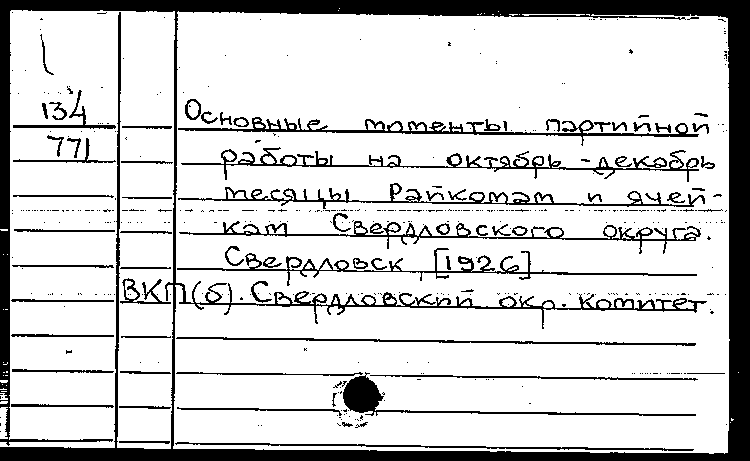 134
771
Основные моменты партийной
работы на октябрь-декабрь
месяцы Райкомам и ячей-
кам Свердловского округа.
Свердловск, [1926]
ВКП(б). Свердловский окр. комитет.